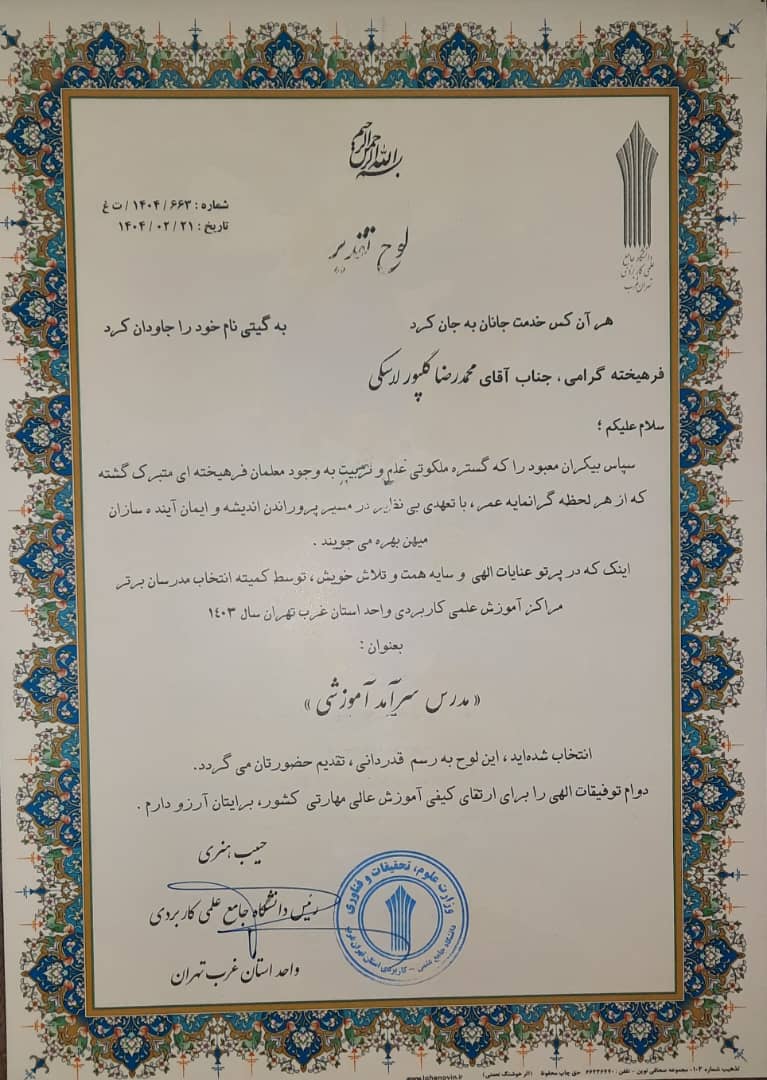 بسم الله الرحمن الرحیم
دانشگاه جامع
علمی کاربردی
تهران غرب
شماره : ۶۶۳ / ۱۴۰۴ / ت غ
تاریخ : ۲۱ / ۰۲ / ۱۴۰۴
لوح تقدیر
هر آن کس خدمت جانان به جان کرد به گیتی نام خود را جاودان کرد
فرهیخته گرامی ، جناب آقای محمدرضا گلپور لاسکی
سلام علیکم ؛
سپاس بیکران معبود را که گستره ملکوتی علم و تربیت به وجود معلمان فرهیخته ای متبرک گشته
که از هر لحظه گرانمایه عمر ، با تعهدی بی نظیر در مسیر پروراندن اندیشه و ایمان آینده سازان
میهن بهره می جویند .
اینک که در پرتو عنایات الهی و سایه همت و تلاش خویش ، توسط کمیته انتخاب مدرسان برتر
مراکز آموزش علمی کاربردی واحد استان غرب تهران سال ۱۴۰۳
بعنوان :
« مدرس سرآمد آموزشی »
انتخاب شده‌اید ، این لوح به رسم قدردانی ، تقدیم حضورتان می گردد.
دوام توفیقات الهی را برای ارتقای کیفی آموزش عالی مهارتی کشور، برایتان آرزو دارم .
حبیب هنری
رئیس دانشگاه جامع علمی کاربردی
واحد استان غرب تهران
وزارت علوم، تحقیقات و فناوری
دانشگاه جامع علمی - کاربردی استان تهران غرب
تذهیب شماره ۱۰۳ - مجموعه صحافی نوین - تلفن : ۶۶۴۳۶۶۹۰ حق چاپ محفوظ (اثر هوشنگ نعمتی)
www.lohenovin.ir